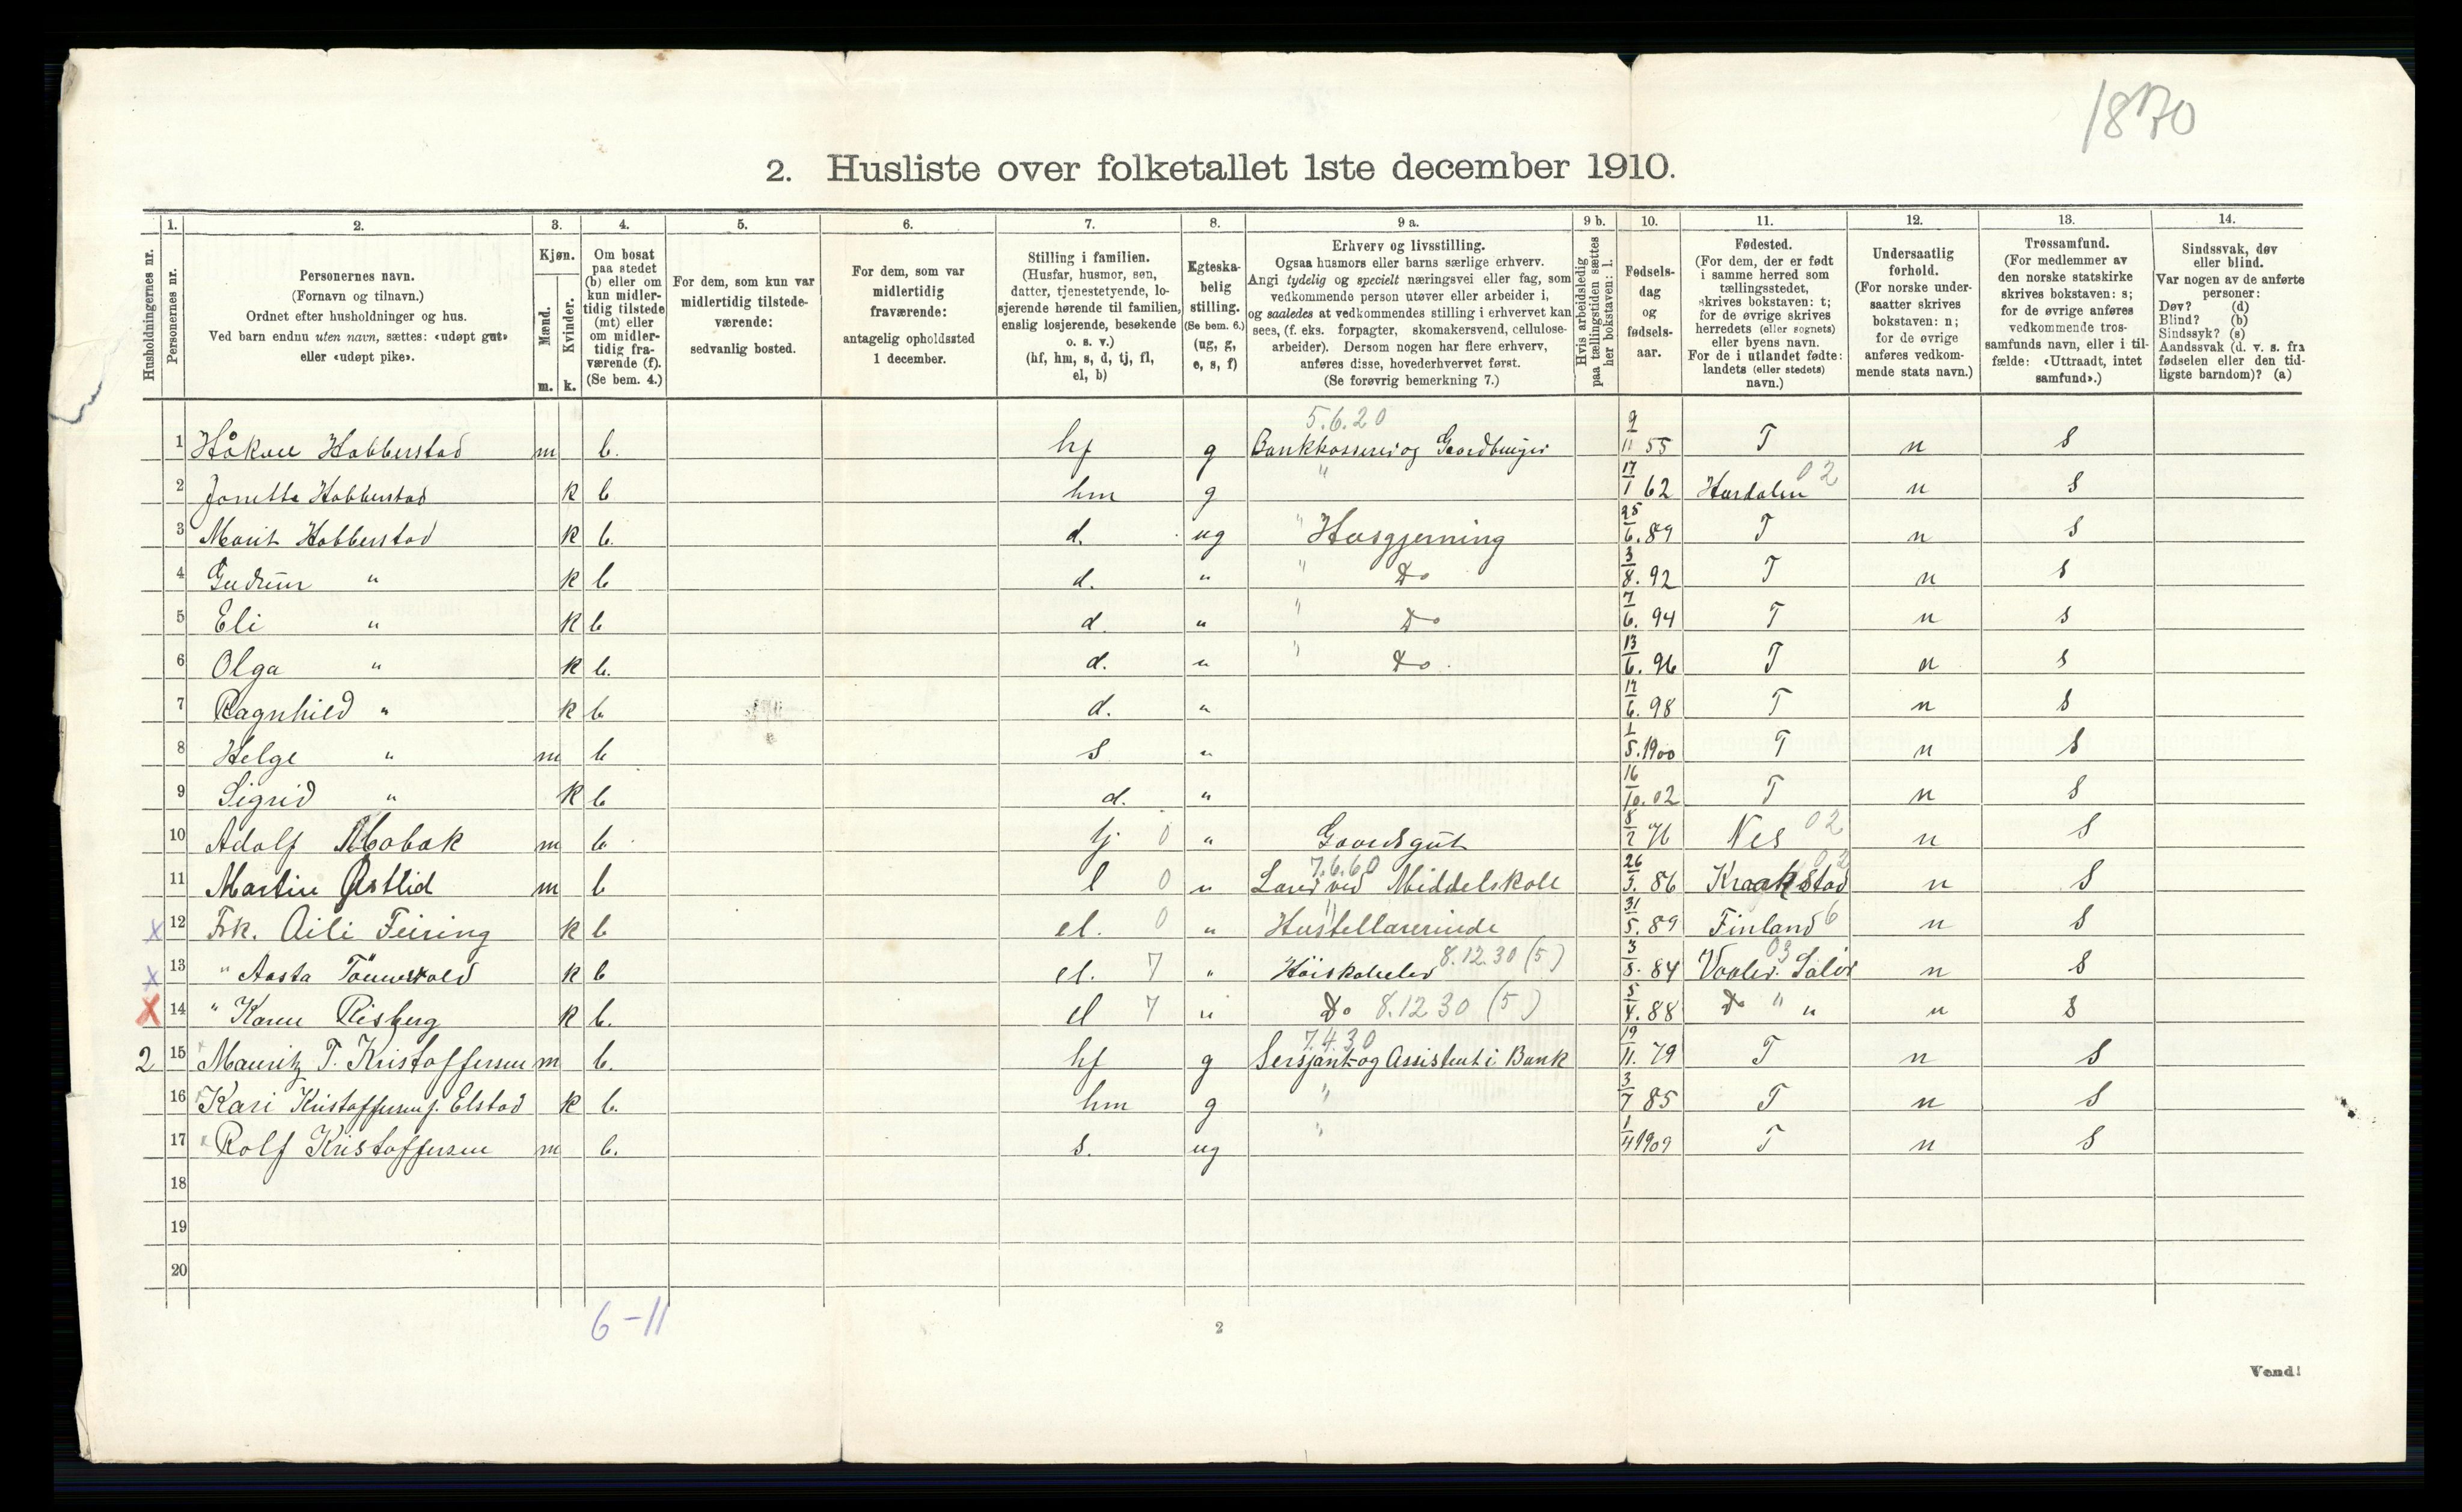 1870
2. Husliste over folketallet 1ste december 1910.
1. 2. 3. 4. 5. 6. 7. 8. 9 a. 9 b. 10. 11. 12. 13. 14.
Husholdningernes nr.
Personernes nr.
Personernes navn.
(Fornavn og tilnavn.)
Ordnet efter husholdninger og hus.
Ved barn endnu uten navn, sættes: «udøpt gut»
eller «udøpt pike».
Kjøn.
Mænd.
Kvinder.
m. k.
Om bosat
paa stedet
(b) eller om
kun midler-
tidig tilstede
(mt) eller
om midler-
tidig fra-
værende (f).
(Se bem. 4.)
For dem, som kun var
midlertidig tilstede-
værende:
sedvanlig bosted.
For dem, som var
midlertidig
fraværende:
antagelig opholdssted
1 december.
Stilling i familien.
(Husfar, husmor, søn,
datter, tjenestetyende, lo-
sjerende hørende til familien,
enslig losjerende, besøkende
o. s. v.)
(hf, hm, s, d, tj, fl,
el, b)
Egteska-
belig
stilling.
(Se bem. 6.)
(ug, g,
e, s, f)
Erhverv og livsstilling.
Ogsaa husmors eller barns særlige erhverv.
Angi tydelig og specielt næringsvei eller fag, som
vedkommende person utøver eller arbeider i,
og saaledes at vedkommendes stilling i erhvervet kan
sees, (f. eks. forpagter, skomakersvend, cellulose-
arbeider). Dersom nogen har flere erhverv,
anføres disse, hovederhvervet først.
(Se forøvrig bemerkning 7.)
Hvis arbeidsledig
paa tællingstiden sættes
her bokstaven: l.
Fødsels-
dag
og
fødsels-
aar.
Fødested.
(For dem, der er født
i samme herred som
tællingsstedet,
skrives bokstaven: t;
for de øvrige skrives
herredets (eller sognets)
eller byens navn.
For de i utlandet fødte:
landets (eller stedets)
navn.)
Undersaatlig
forhold.
(For norske under-
saatter skrives
bokstaven: n;
for de øvrige
anføres vedkom-
mende stats navn.)
Trossamfund.
(For medlemmer av
den norske statskirke
skrives bokstaven: s;
for de øvrige anføres
vedkommende tros-
samfunds navn, eller i til-
fælde: «Uttraadt, intet
samfund».)
Sindssvak, døv
eller blind.
Var nogen av de anførte
personer:
Døv? (d)
Blind? (b)
Sindssyk? (s)
Aandssvak (d. v. s. fra
fødselen eller den tid-
ligste barndom)? (a)
5.6.20
1 Håkon Habberstad m b. hf g Bankkasserer og Gaardbruger 9/11 55 T n S
2 Jonette Habberstad k b hm g " 17/1 62 Hurdalen 02 n S
3 Marit Habberstad k b. d. ug " Husgjerning 25/6. 89 T n S
4 Gudrun " k b d. " " Do 3/8. 92 T n S
5 Eli " k b d. " " Do 7/6. 94 T n S
6 Olga " k b. d. " " Do 13/6. 96 T n S
7 Ragnhild " k b d. " 17/6. 98 T n S
8 Helge " m b s " 1/5. 1900 T n S
9 Sigrid " k b d. " 16/10. 02 T n S
10 Adolf Mobak m b. tj 0 " Gaardsgut 8/2 76 Nes 02 n S
7.6.60
11 Martin Østlid m b l 0 " Lærer ved Middelskole 26/3. 86 Kraakstad 02 n S
x 12 Frk. Aili Feiring k b el. 0 " Hustellærerinde " 31/5. 89 Finland 6 n S
x 13 " Aasta k b el. 7 " Höiskoleelev 8.12.30 (5) 3/8. 84 Vaaler. Solør 03 n S
x 14 " Karen Risberg k b. el 7 " Do 8.12 30 (5) 5/4. 88 Do " " n S
7.4.30
2 15 Mauritz T. Kristoffersen m b. hf g Sersjant og Assistent i Bank 19/11. 79 T n S
16 Kari Kristoffersen f. Elstad k b. hm g " 3/7 85 T n S
17 Rolf Kristoffersen m b. s. ug " 1/4 1909 T n S
18
19
20
6-11
2
Vend!